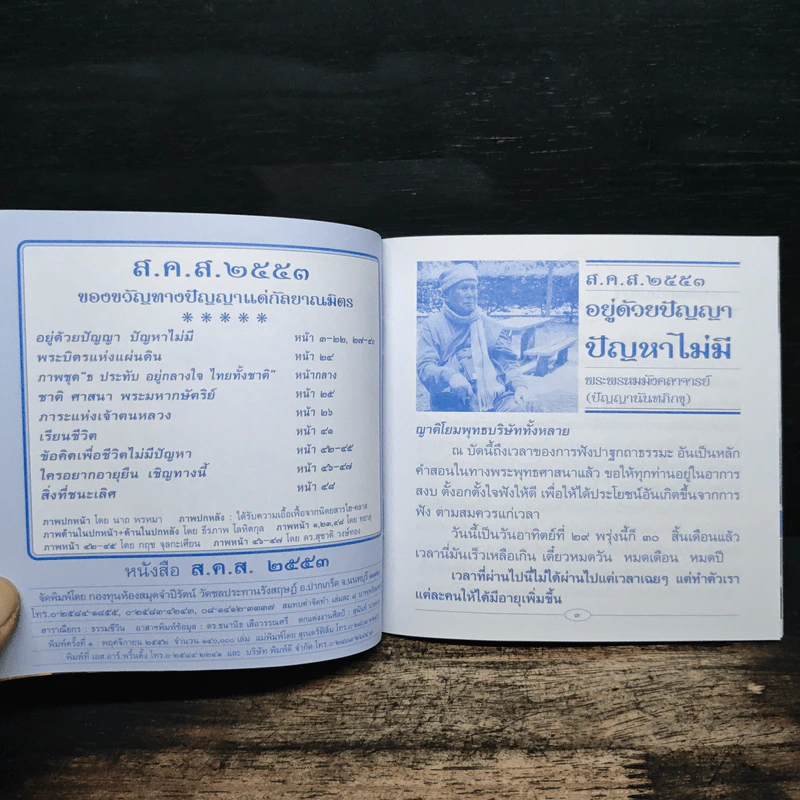 ส.ค.ส.๒๕๕๓
ของขวัญทางปัญญาแด่กัลยาณมิตร
อยู่ด้วยปัญญา ปัญหาไม่มี หน้า ๓-๒๒, ๒๗-๔๐
พระบิตรแห่งแผ่นดิน หน้า ๒๔
ภาพชุด"ธ ประทับ อยู่กลางใจ ไทยทั้งชาติ" หน้ากลาง
ชาติ ศาสนา พระมหากษัตริย์ หน้า ๒๕
ภาระแห่งเจ้าตนหลวง หน้า ๒๖
เรียนชีวิต หน้า ๔๑
ข้อคิดเพื่อชีวิตไม่มีปัญหา หน้า ๔๒-๔๕
ใครอยากอายุยืน เชิญทางนี้ หน้า ๔๖-๔๗
สิ่งที่ชนะเลิศ หน้า ๔๘
ภาพปกหน้า โดย นาถ พรหมา ภาพปกหลัง : ได้รับความเอื้อเฟื้อจากนิตยสาร
ภาพด้านในปกหน้า+ด้านในปกหลัง โดย ธีรภาพ โลหิตกุล ภาพหน้า ๑,๒๓,๔๘ โดย
ภาพหน้า ๔๒-๔๕ โดย กฤช จุลกะเศียน ภาพหน้า ๔๖-๔๗ โดย ดร.สุชาติ วงษ์ทอง
หนังสือ ส.ค.ส. ๒๕๕๓
จัดพิมพ์โดย กองทุนห้องสมุดจำปีรัตน์ วัดชลประทานรังสฤษฎ์ อ.ปากเกร็ด จ.นนทบุรี
สาราณียกร : ธรรมชีวิน อาสาฯพิมพ์ข้อมูล : ดร.ธนานิธ เสือวรรณศรี ตกแต่งงานศิลป์ :
พิมพ์ครั้งที่ ๑ : พฤศจิกายน ๒๕๕๒ จำนวน ๑๔๐,๐๐๐ เล่ม แม่พิมพ์โดย
พิมพ์ที่ เอส.อาร์.พริ้นติ้ง และ บริษัท พิมพ์ดี จำกัด
ส.ค.ส.๒๕๕๓
อยู่ด้วยปัญญา
ปัญหาไม่มี
พระพรหมมังคลาจารย์
(ปัญญานันทภิกขุ)
ญาติโยมพุทธบริษัททั้งหลาย
ณ บัดนี้ถึงเวลาของการฟังปาฐกถาธรรมะ อันเป็นหลัก
คำสอนในทางพระพุทธศาสนาแล้ว ขอให้ทุกท่านอยู่ในอาการ
สงบ ตั้งอกตั้งใจฟังให้ดี เพื่อให้ได้ประโยชน์อันเกิดขึ้นจากการ
ฟัง ตามสมควรแก่เวลา
วันนี้เป็นวันอาทิตย์ที่ ๒๙ พรุ่งนี้ก็ ๓๐ สิ้นเดือนแล้ว
เวลานี่มันเร็วเหลือเกิน เดี๋ยวหมดวัน หมดเดือน หมดปี
เวลาที่ผ่านไปนี่ไม่ได้ผ่านไปแต่เวลาเฉยๆ แต่ทำตัวเรา
แต่ละคนให้ได้มีอายุเพิ่มขึ้น